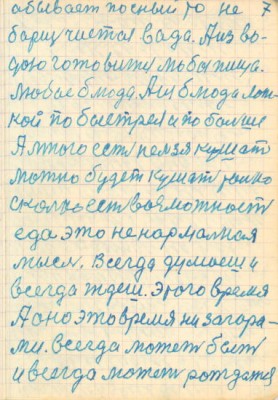 абывает посный то не 7
барщ чистая вада. Аиз во-
дою готовижи мобы пища.
Любое блюда. Аиз блюда лож-
кой по быстрея и по болше
А много есть нелзя кушат
можно будет кушат толко
сколко есть возможност
еда это не нормалная
мысл. Всегда думаеш и
всегда ждеш. Этого время
А оно это время ни за гора-
ми. всегда может быть
и всегда может рождатся